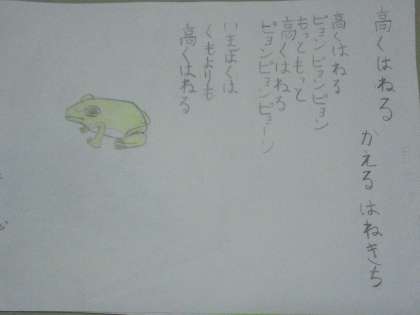 高くはねる かえるはねきち
高くはねる
ピョンピョンピョン
もっともっと
高くはねる
ピョンピョンピョーン
いまぼくは
くもよりも
高くはねる